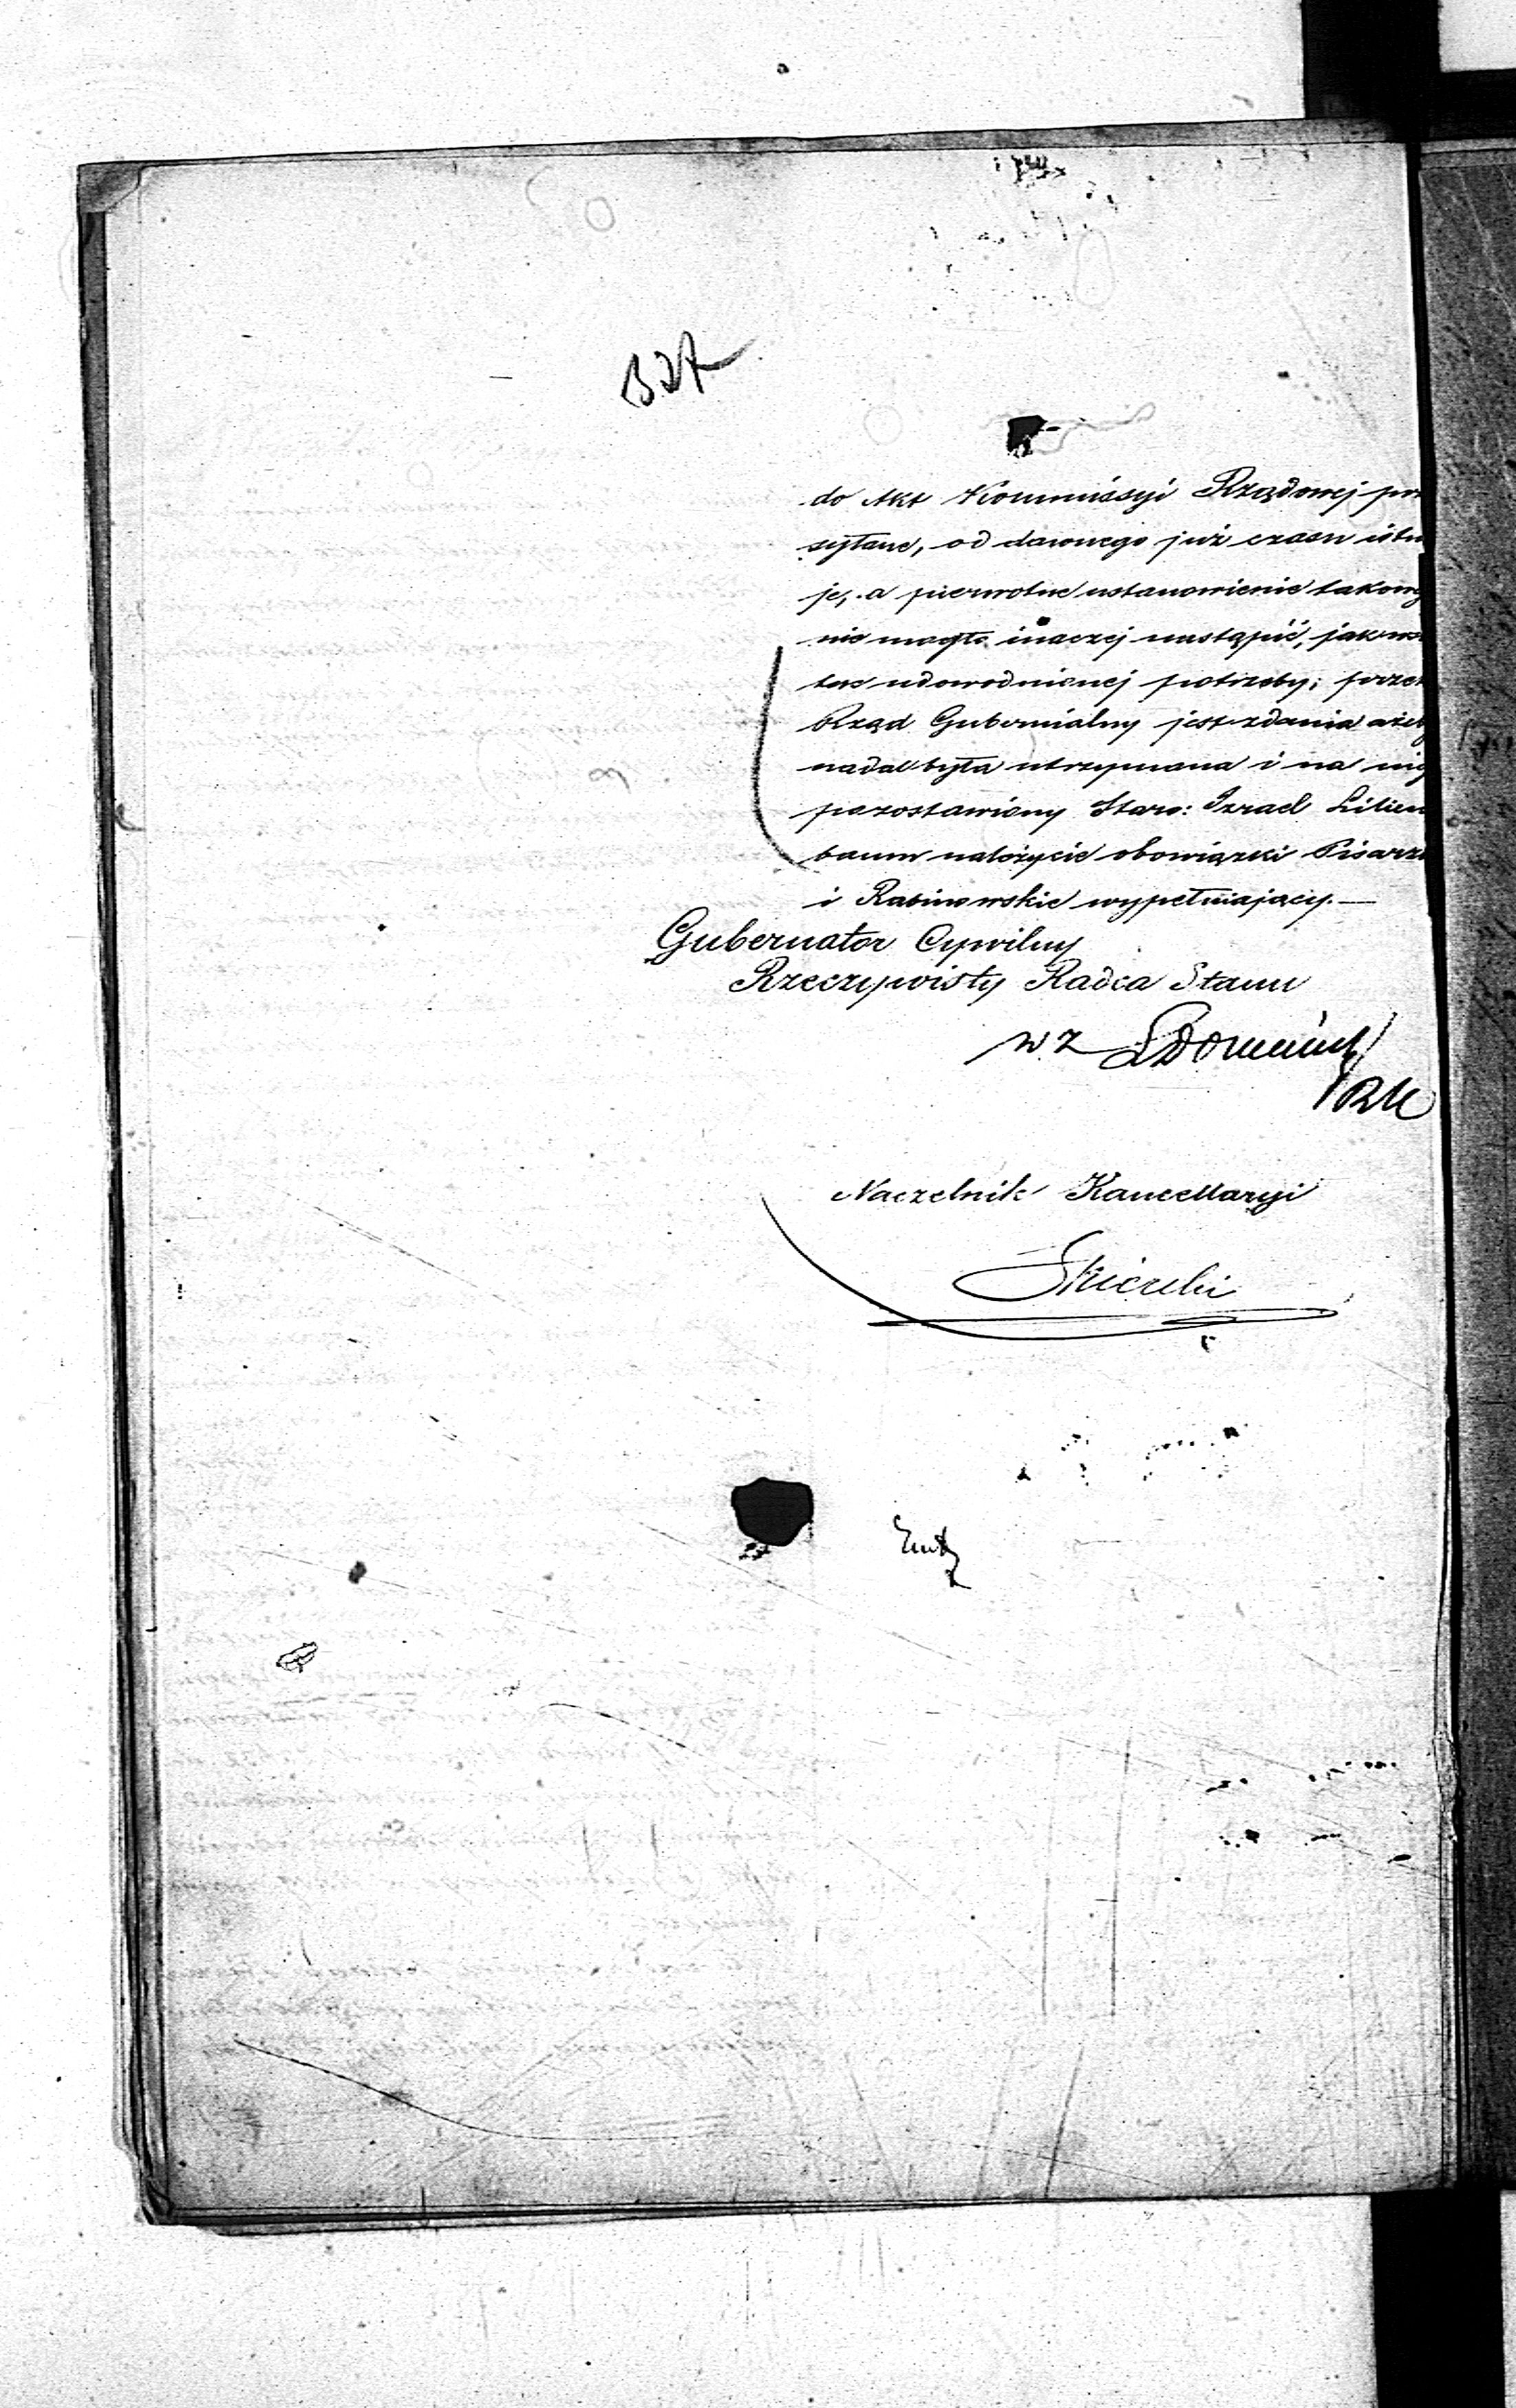 do Akt Kommissyi Rządowej prze
syłane, od dawnego już czasu istnu
je, a pierwotne ustanowienie takowej
nie mogło inaczej nastąpić, jak
tek udowodnionej potrzeby; przeto
Rząd Gubernialny jest zdania ażeby
nadal była utrzymana i na niej
pozostawiony Staro: Izrael Lilien
baum należycie obowiązki Pisarza
i Rabinowskie wypełniający.—
Gubernator Cywilny
Rzeczywisty Radca Stanu
wz
Naczelnik Kancellaryi